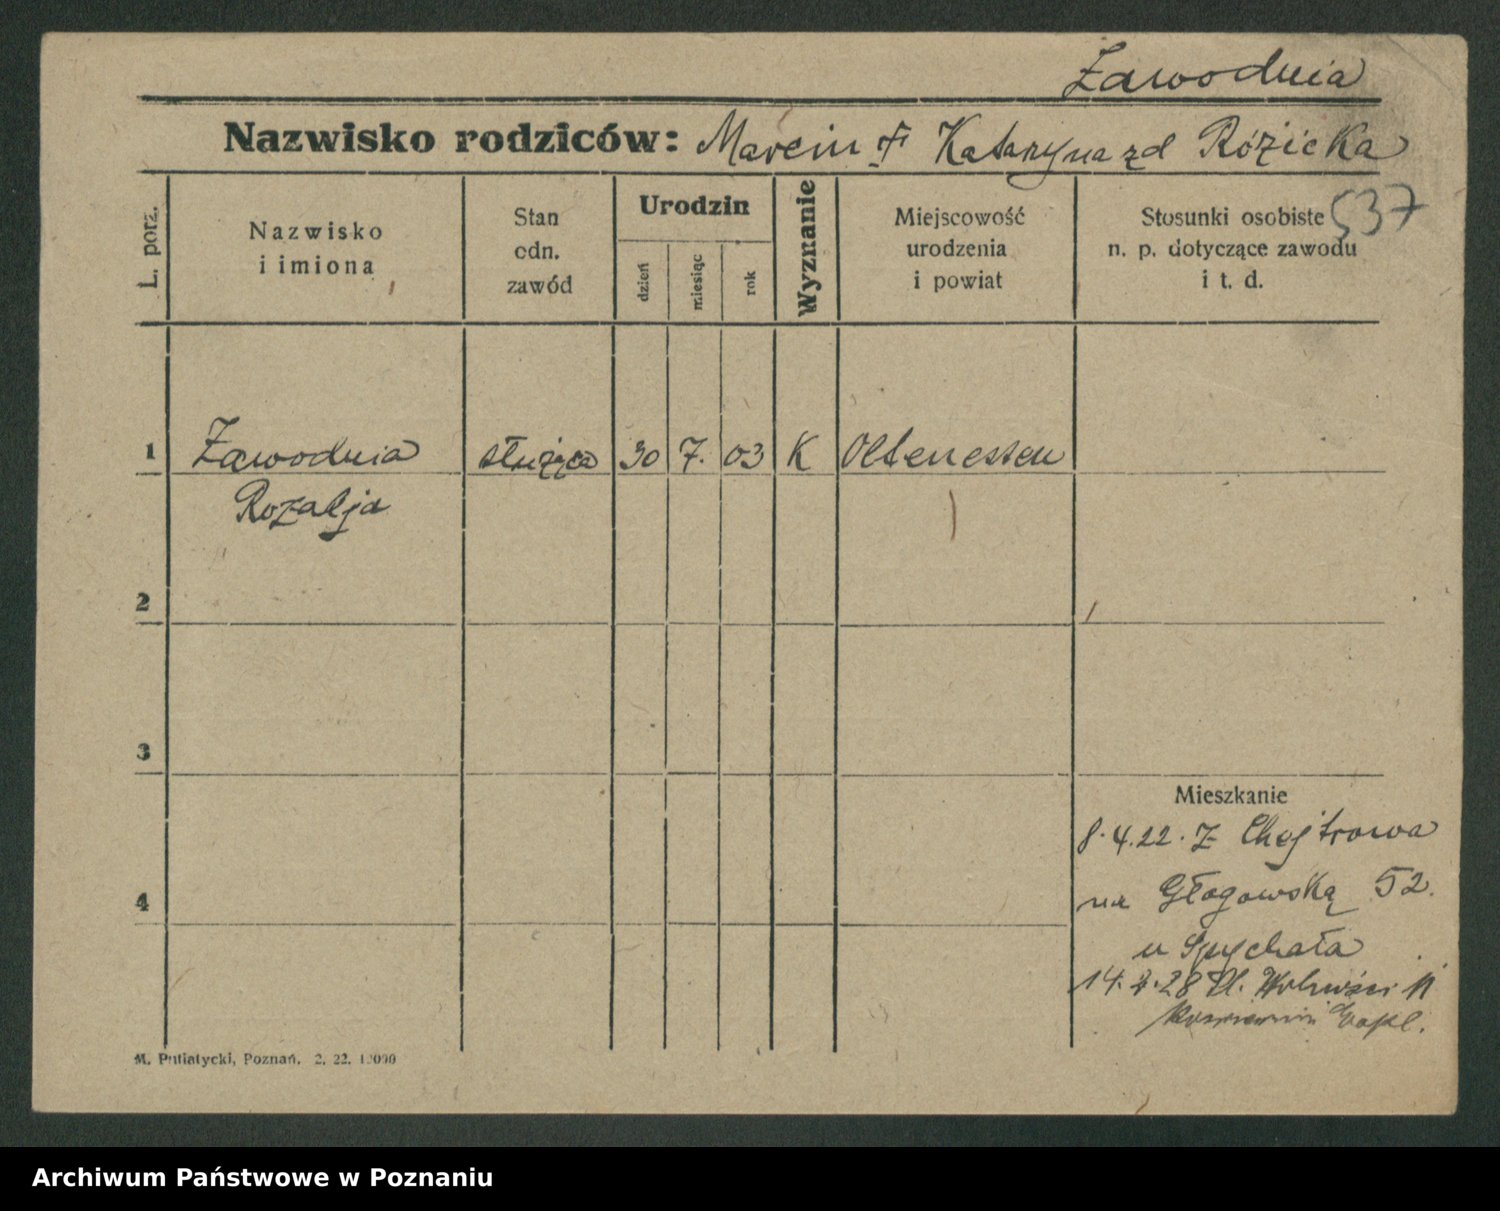 Zawodnia
Nazwisko rodziców: Marcin Katarzyna zd Różicka
537
L. porz.
Nazwisko
i imiona
Stan
odn.
zawód
Urodzin
dzień
miesiąc
rok
Wyznanie
Miejscowość
urodzenia
i powiat
Stosunki osobiste
n. p. dotyczące zawodu
i t. d.
1 Zawodnia służąca 30 7. 03 K Oltenessen
Rozalja
2
3
Mieszkanie
8.4.22. Z Chojtrowa
4
na Głogowską 52.
u Spychała
14. 28 Pl. Wolności 11
M. Putiatycki, Poznań. 2. 22.
Archiwum Państwowe w Poznaniu